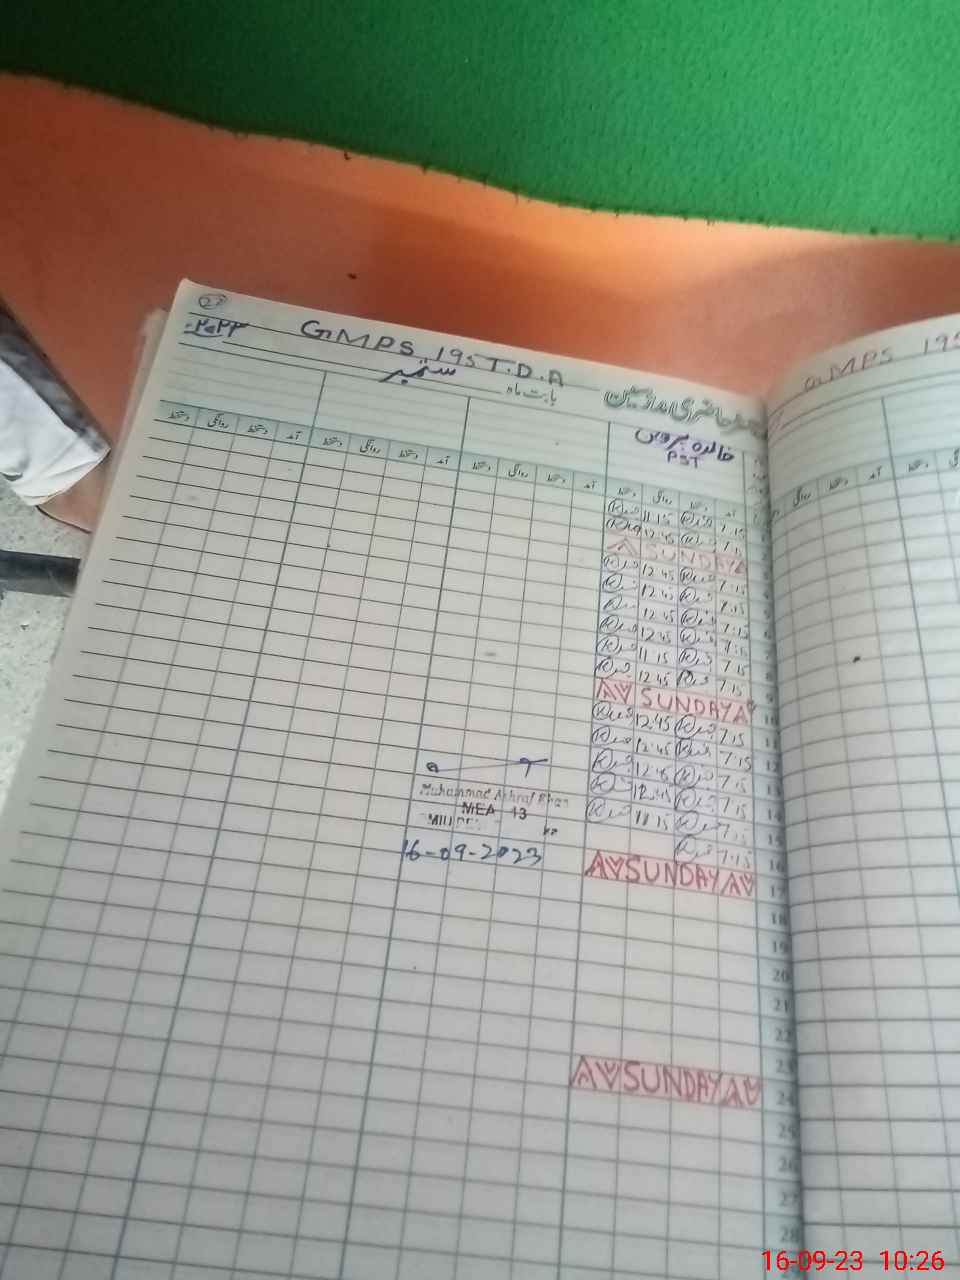 27
۲۰۲۳
GMPS 195 T.D.A
ستمبر
بابت ماہ
حاضری ملازمین
خالدہ پروین
PST
دستخط روانگی دستخط آمد
دستخط روانگی دستخط آمد
دستخط روانگی دستخط آمد
دستخط روانگی دستخط آمد
11:15 7:15
12:45 7:15
SUNDAY
12:45 7:15
12:45 7:15
12:45 7:15
12:45 7:15
11:15 7:15
12:45 7:15
SUNDAY
12:45 7:15
12:45 7:15
12:45 7:15
12:45 7:15
11:15 7:15
7:15 16
SUNDAY 17
18
19
20
21
22
23
SUNDAY 24
25
26
27
28
Muhammad Ashraf Khan
MEA 13
16-09-2023
GMPS 195
روانگی دستخط آمد دستخط
16-09-23 10:26